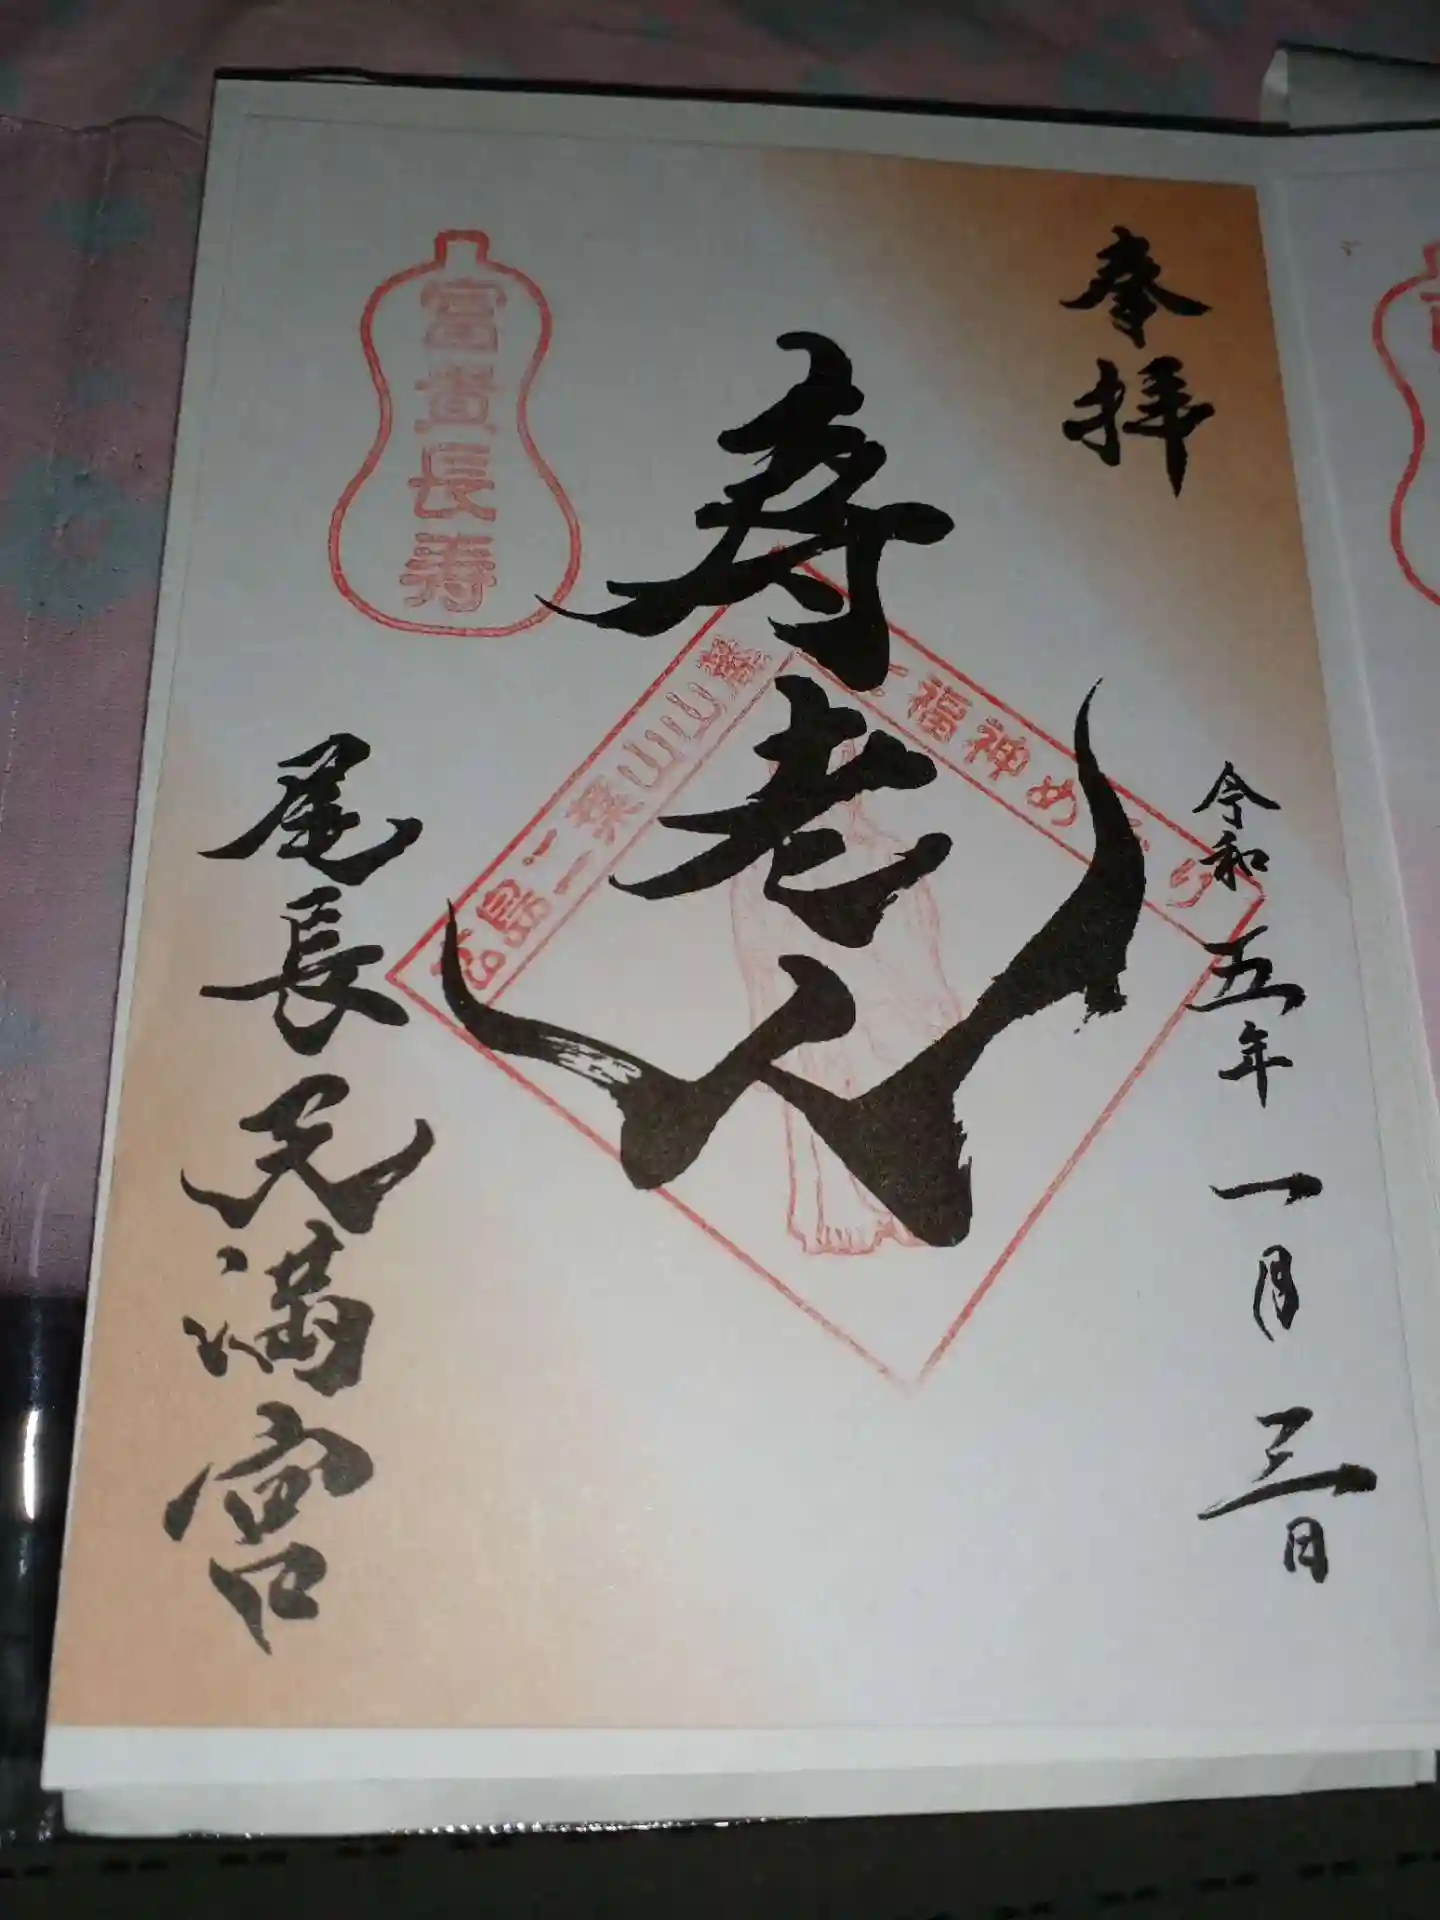 奉拝
令和五年一月三日
寿老人
七福神めぐり
広島二葉山山麓
富貴長寿
尾長天満宮